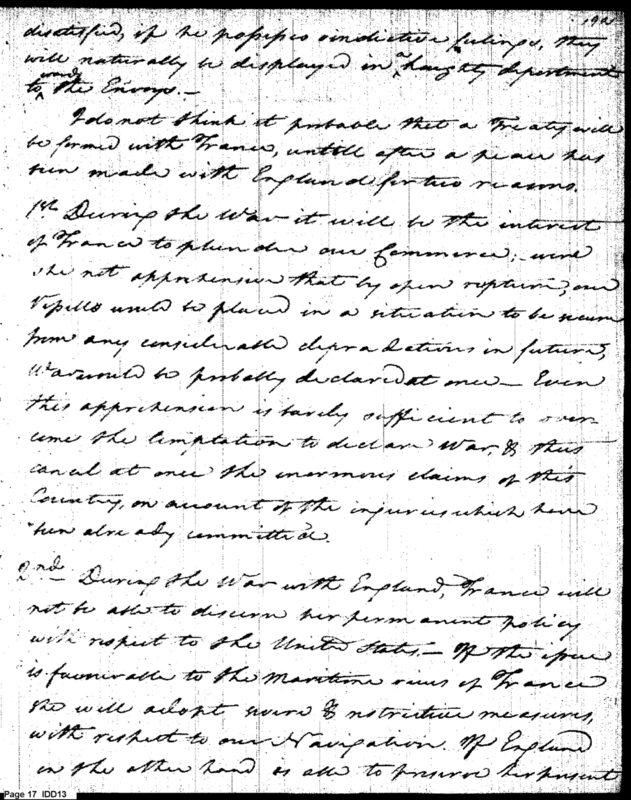 dissatisfied, if he possesses vindictive feelings, they
will naturally be displayed in a haughty deportment
to wards the Envoys.—
I do not think it probable that a Treaty will
be formed with France, untill after a peace has
been made with England for two reasons.
1st During the War it will be the interest
of France to plunder our Commerce;— were
she not apprehensive that by open rupture, our
Vessells would be placed in a situation to be secure
from any considerable depradations in future,
War would be probably declared at once— Even
this apprehension is barely sufficient to over
come the temptation to declare War, & thus
cancel at once the enormous claims of this
Country, on account of the injuries which have
been already committed.
2nd— During the War with England, France will
not be able to discern her permanent policy
with respect to the United States.— If the issue
is favourable to the Maritime views of France
she will adopt severe & restrictive measures,
with respect to our Navigation. If England
on the other hand is able to preserve her present
Page 17 IDD13